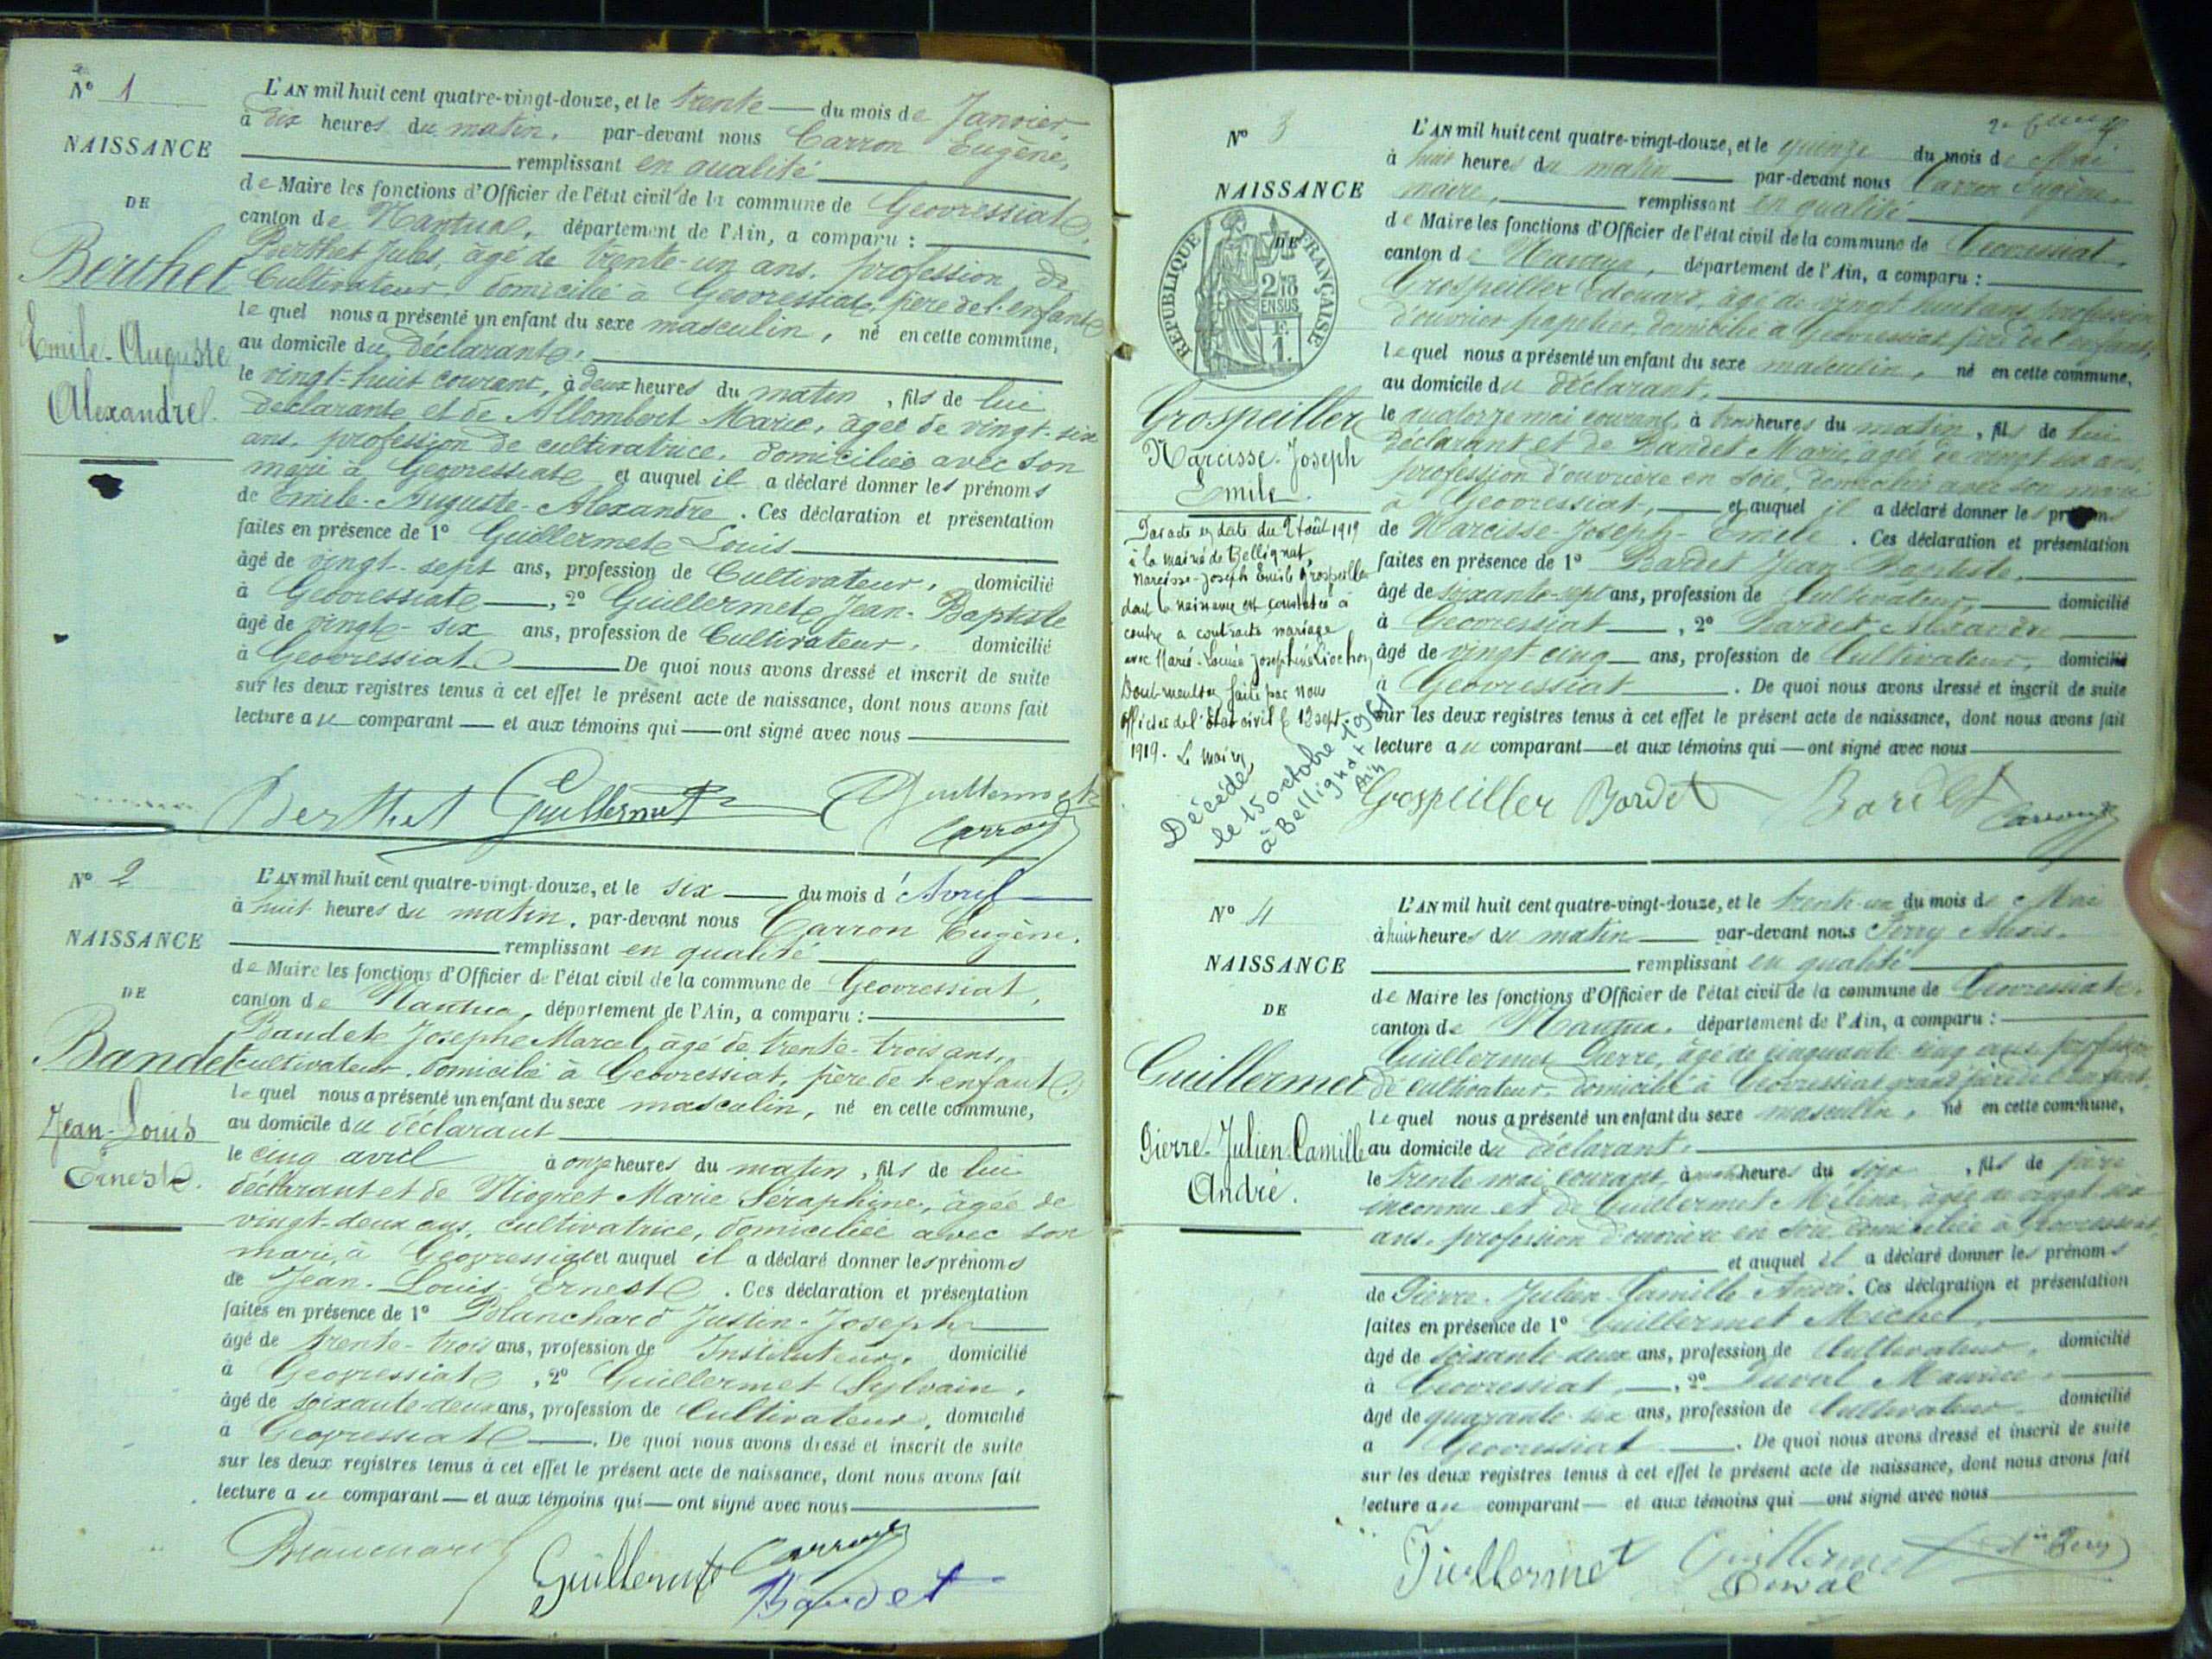 N° 1
NAISSANCE
DE
Berthet
Emile-Auguste
Alexandre.
L'AN mil huit cent quatre-vingt-douze, et le trente — du mois de Janvier,
à dix heures du matin, par-devant nous Carron Eugène,
remplissant en qualité
de Maire les fonctions d'Officier de l'état civil de la commune de Geovressiat,
canton de Nantua, département de l'Ain, a comparu :
Berthet Jules, âgé de trente-un ans, profession de
Cultivateur, domicilié à Geovressiat, père de l'enfant
lequel nous a présenté un enfant du sexe masculin, né en cette commune,
au domicile du déclarant,
le vingt-huit courant, à deux heures du matin, fils de lui
déclarant et de Allombert Marie, âgée de vingt-six
ans, profession de cultivatrice, domiciliée avec son
mari à Geovressiat et auquel il a déclaré donner les prénoms
de Emile-Auguste-Alexandre. Ces déclaration et présentation
faites en présence de 1° Guillermet Louis
âgé de vingt-sept ans, profession de Cultivateur, domicilié
à Geovressiat —, 2° Guillermet Jean-Baptiste
âgé de vingt-six ans, profession de Cultivateur, domicilié
à Geovressiat — De quoi nous avons dressé et inscrit de suite
sur les deux registres tenus à cet effet le présent acte de naissance, dont nous avons fait
lecture au comparant — et aux témoins qui — ont signé avec nous
Berthet Guillermet Guillermet
Carron
N° 2
NAISSANCE
DE
Bandet
Jean-Louis
Ernest.
L'AN mil huit cent quatre-vingt-douze, et le six — du mois d'Avril
à huit heures du matin, par-devant nous Carron Eugène,
remplissant en qualité
de Maire les fonctions d'Officier de l'état civil de la commune de Geovressiat,
canton de Nantua, département de l'Ain, a comparu :
Baudet Joseph Marcel, âgé de trente-trois ans,
cultivateur, domicilié à Geovressiat, père de l'enfant
lequel nous a présenté un enfant du sexe masculin, né en cette commune,
au domicile du déclarant
le cinq avril à onze heures du matin, fils de lui
déclarant et de Niogret Marie Séraphine, âgée de
vingt-deux ans, cultivatrice, domiciliée avec son
mari, à Geovressiat et auquel il a déclaré donner les prénoms
de Jean-Louis-Ernest. Ces déclaration et présentation
faites en présence de 1° Blanchard Justin-Joseph
âgé de trente-trois ans, profession de Instituteur, domicilié
à Geovressiat, 2° Guillermet Sylvain,
âgé de soixante-deux ans, profession de Cultivateur, domicilié
à Geovressiat —. De quoi nous avons dressé et inscrit de suite
sur les deux registres tenus à cet effet le présent acte de naissance, dont nous avons fait
lecture au comparant — et aux témoins qui — ont signé avec nous
Blanchard Guillermet Carron
Baudet
N° 3
NAISSANCE
DE
RÉPUBLIQUE FRANÇAISE
Grospeiller
Narcisse-Joseph
Emile.
Par acte en date du 2 Août 1919
à la mairie de Bellignat,
Narcisse-Joseph Emile Grospeiller
dont la naissance est constatée ci
contre a contracté mariage
avec Marie-Louise Joséphine
Dont mention faite par nous
Officier de l'Etat civil le 12 sept.
1919. Le maire,
Décédé
le 15 octobre 1961
à Bellignat
Ain
L'AN mil huit cent quatre-vingt-douze, et le quinze du mois de Mai
à huit heures du matin — par-devant nous Carron Eugène,
maire, remplissant en qualité
de Maire les fonctions d'Officier de l'état civil de la commune de Geovressiat,
canton de Nantua, département de l'Ain, a comparu :
Grospeiller Edouard, âgé de vingt-huit ans, profession
d'ouvrier papetier, domicilié à Geovressiat, père de l'enfant,
lequel nous a présenté un enfant du sexe masculin, né en cette commune,
au domicile du déclarant,
le quatorze mai courant, à trois heures du matin, fils de lui
déclarant et de Marie, âgée de vingt-six ans,
profession d'ouvrière en soie, domiciliée avec son mari
à Geovressiat, — et auquel il a déclaré donner les prénoms
de Narcisse-Joseph-Emile. Ces déclaration et présentation
faites en présence de 1° Bardet Jean Baptiste,
âgé de soixante-sept ans, profession de Cultivateur, — domicilié
à Geovressiat —, 2° Bardet Alexandre
âgé de vingt-cinq — ans, profession de Cultivateur, domicilié
à Geovressiat. De quoi nous avons dressé et inscrit de suite
sur les deux registres tenus à cet effet le présent acte de naissance, dont nous avons fait
lecture au comparant — et aux témoins qui — ont signé avec nous
Grospeiller Bardet Bardet Carron
N° 4
NAISSANCE
DE
Guillermet
Pierre-Julien-Camille
André.
L'AN mil huit cent quatre-vingt-douze, et le trente-un du mois de Mai
à huit heures du matin — par-devant nous Perry Alexis,
remplissant en qualité
de Maire les fonctions d'Officier de l'état civil de la commune de Geovressiat,
canton de Nantua, département de l'Ain, a comparu :
Guillermet Pierre, âgé de cinquante-cinq ans, profession
de cultivateur, domicilié à Geovressiat, grand'père de l'enfant,
lequel nous a présenté un enfant du sexe masculin, né en cette commune,
au domicile du déclarant,
le trente mai courant, à heures du soir, fils de père
inconnu et de Guillermet Mélina, âgée de vingt-six
ans, profession d'ouvrière en soie, domiciliée à Geovressiat,
et auquel il a déclaré donner les prénoms
de Pierre-Julien-Camille-André. Ces déclaration et présentation
faites en présence de 1° Guillermet Michel,
âgé de soixante-deux ans, profession de Cultivateur, domicilié
à Geovressiat, —, 2° Duval Maurice,
âgé de quarante-six ans, profession de Cultivateur, domicilié
à Geovressiat —. De quoi nous avons dressé et inscrit de suite
sur les deux registres tenus à cet effet le présent acte de naissance, dont nous avons fait
lecture au comparant — et aux témoins qui — ont signé avec nous
Guillermet Guillermet Perry
Duval